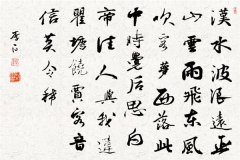 漢水波浪遠巫
山雲雨飛東風
吹客夢西落此
中時覺后思白
帝佳人與我違
瞿塘饒賈客音
信莫令稀